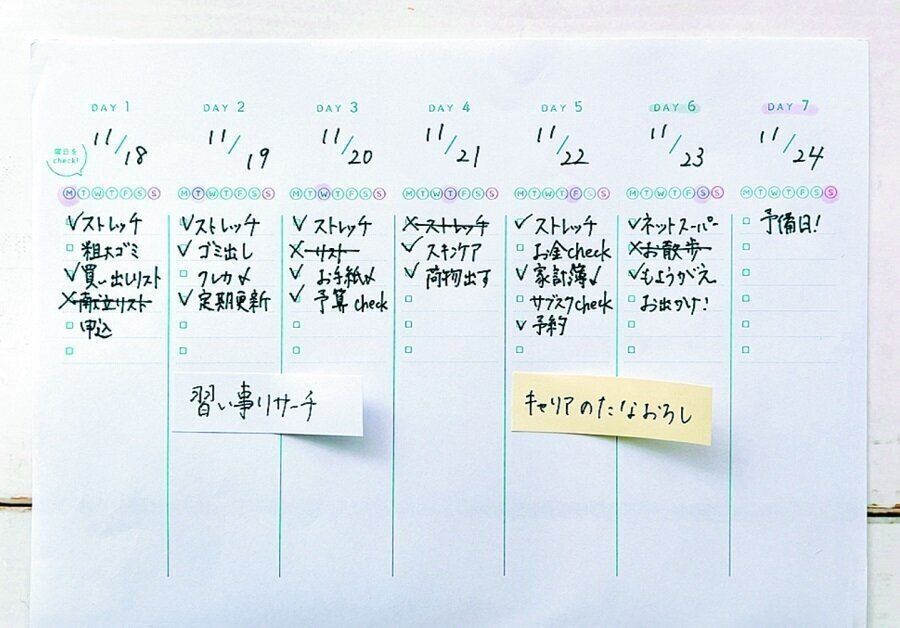 DAY 1
11/18
曜日を
check!
M T W T F S S
ストレッチ
粗大ゴミ
買い出しリスト
献立リスト
申込
DAY 2
11/19
M T W T F S S
ストレッチ
ゴミ出し
クレカ〆
定期更新
DAY 3
11/20
M T W T F S S
ストレッチ
リスト
お手紙〆
予算check
習い事リサーチ
DAY 4
11/21
M T W T F S S
ストレッチ
スキンケア
荷物出す
DAY 5
11/22
M T W T F S S
ストレッチ
お金check
家計簿〆
サブスクcheck
予約
キャリアのたなおろし
DAY 6
11/23
M T W T F S S
ネットスーパー
お散歩
もようがえ
お出かけ!
DAY 7
11/24
M T W T F S S
予備日!